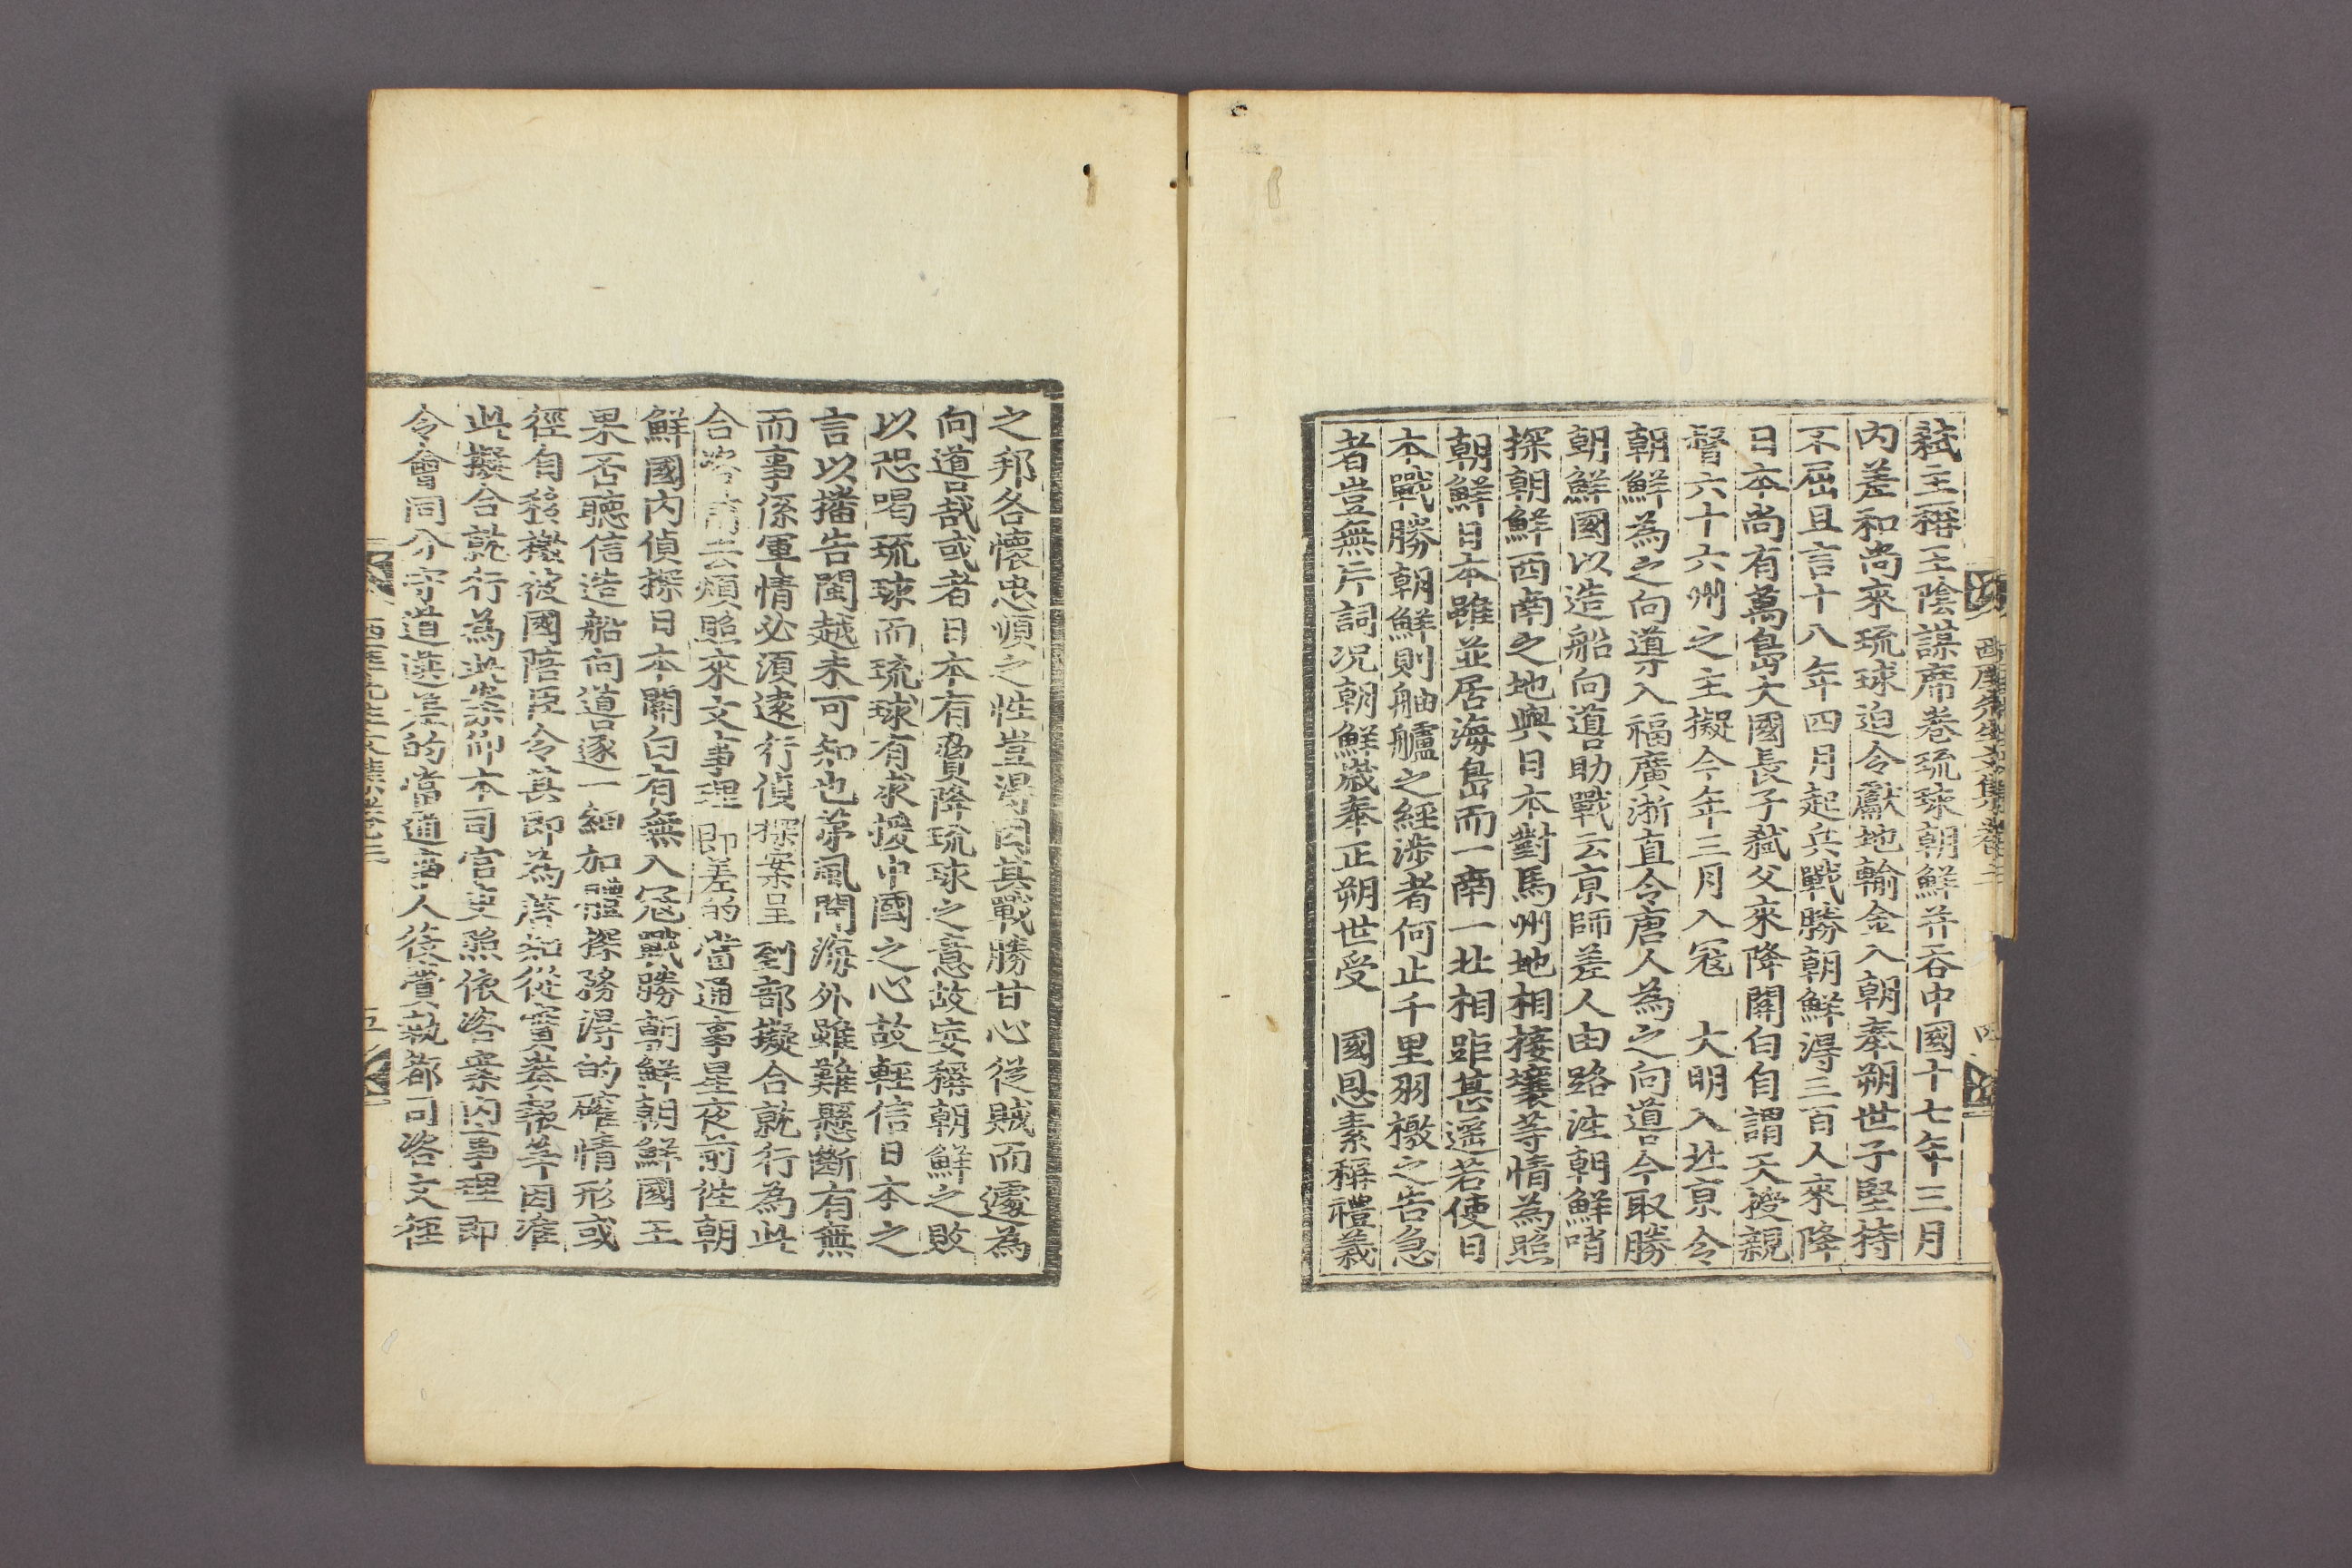 弑主稱王陰謀席卷琉球朝鮮并吞中國十七年三月
内差和尚來琉球迫令獻地輸金入朝奉朔世子堅持
不屈且言十八年四月起兵戰勝朝鮮得三百人來降
日本尚有萬島大國長子弑父來降關白自謂天授親
督六十六州之主擬今年三月入冦　大明入北京令
朝鮮為之向導入福廣浙直令唐人為之向道今取勝
朝鮮國以造船向道助戰云京師差人由路注朝鮮哨
探朝鮮西南之地與日本對馬州地相接壤等情為照
朝鮮日本雖並居海島而一南一北相距甚遥若使日
本戰勝朝鮮則舳艫之經涉者何止千里羽檄之告急
者豈無片詞况朝鮮歲奉正朔世受　國恩素稱禮義
西厓先生文集卷三　四
之邦各懷忠順之性豈得因其戰勝甘心從賊而遽為
向道哉或者日本有脅降琉球之意故妄稱朝鮮之敗
以恐喝琉球而琉球有求援中國之心故輕信日本之
言以播告閩越未可知也第風聞海外雖難懸斷有無
而事係軍情必須遠行偵探案呈到部擬合就行為此
合咨前去煩照來文事理即差的當通事星夜前徃朝
鮮國内偵探日本關白有無入冦戰勝朝鮮朝鮮國王
果否聽信造船向道逐一細加體探務得的確情形或
徑自移檄彼國陪臣令其即為啓知從實奏報等因准
此擬合就行為此案仰本司官吏照依咨案内事理即
令會同分守道選差的當通事人役賫執都司咨文徑
西厓先生文集卷三　五